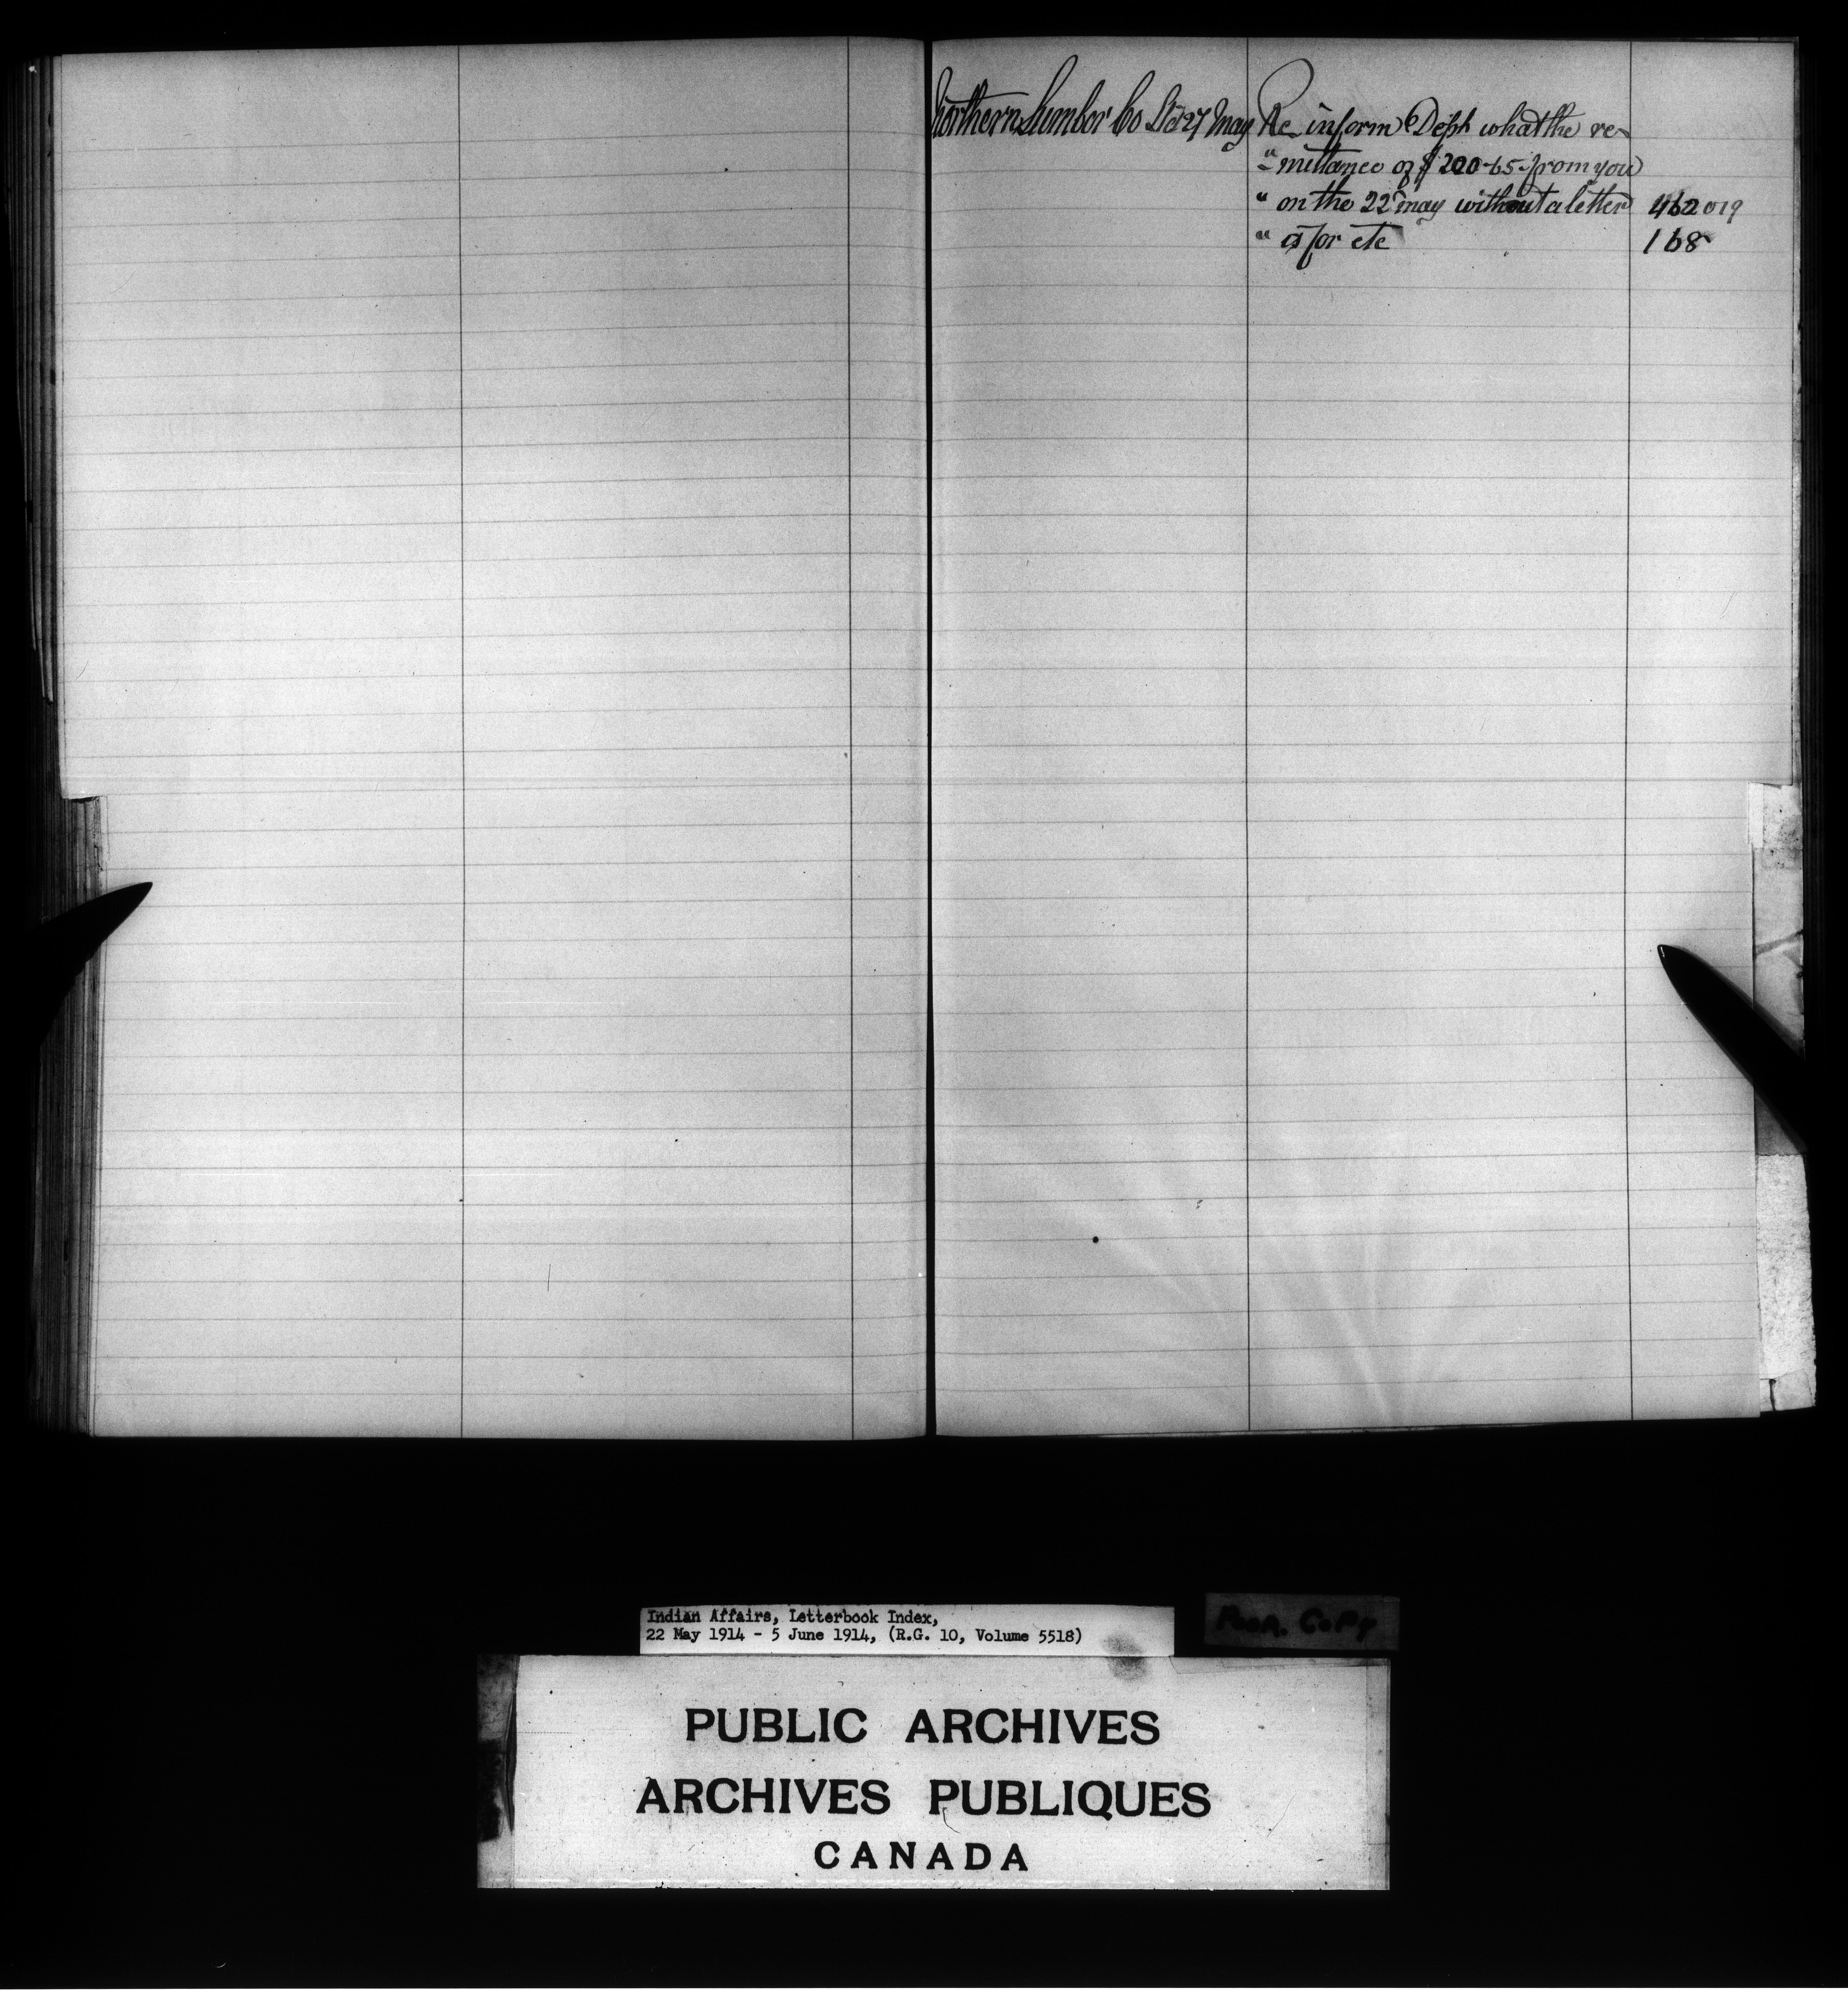 Northern Lumber Co Ltd 27 May Re inform Dept what the re-
" mittance of $200-65 from you
" on the 22 May without a letter 462019
" is for etc 168
Indian Affairs, Letterbook Index,
22 May 1914 - 5 June 1914, (R.G. 10, Volume 5518)
POOR COPY
PUBLIC ARCHIVES
ARCHIVES PUBLIQUES
CANADA